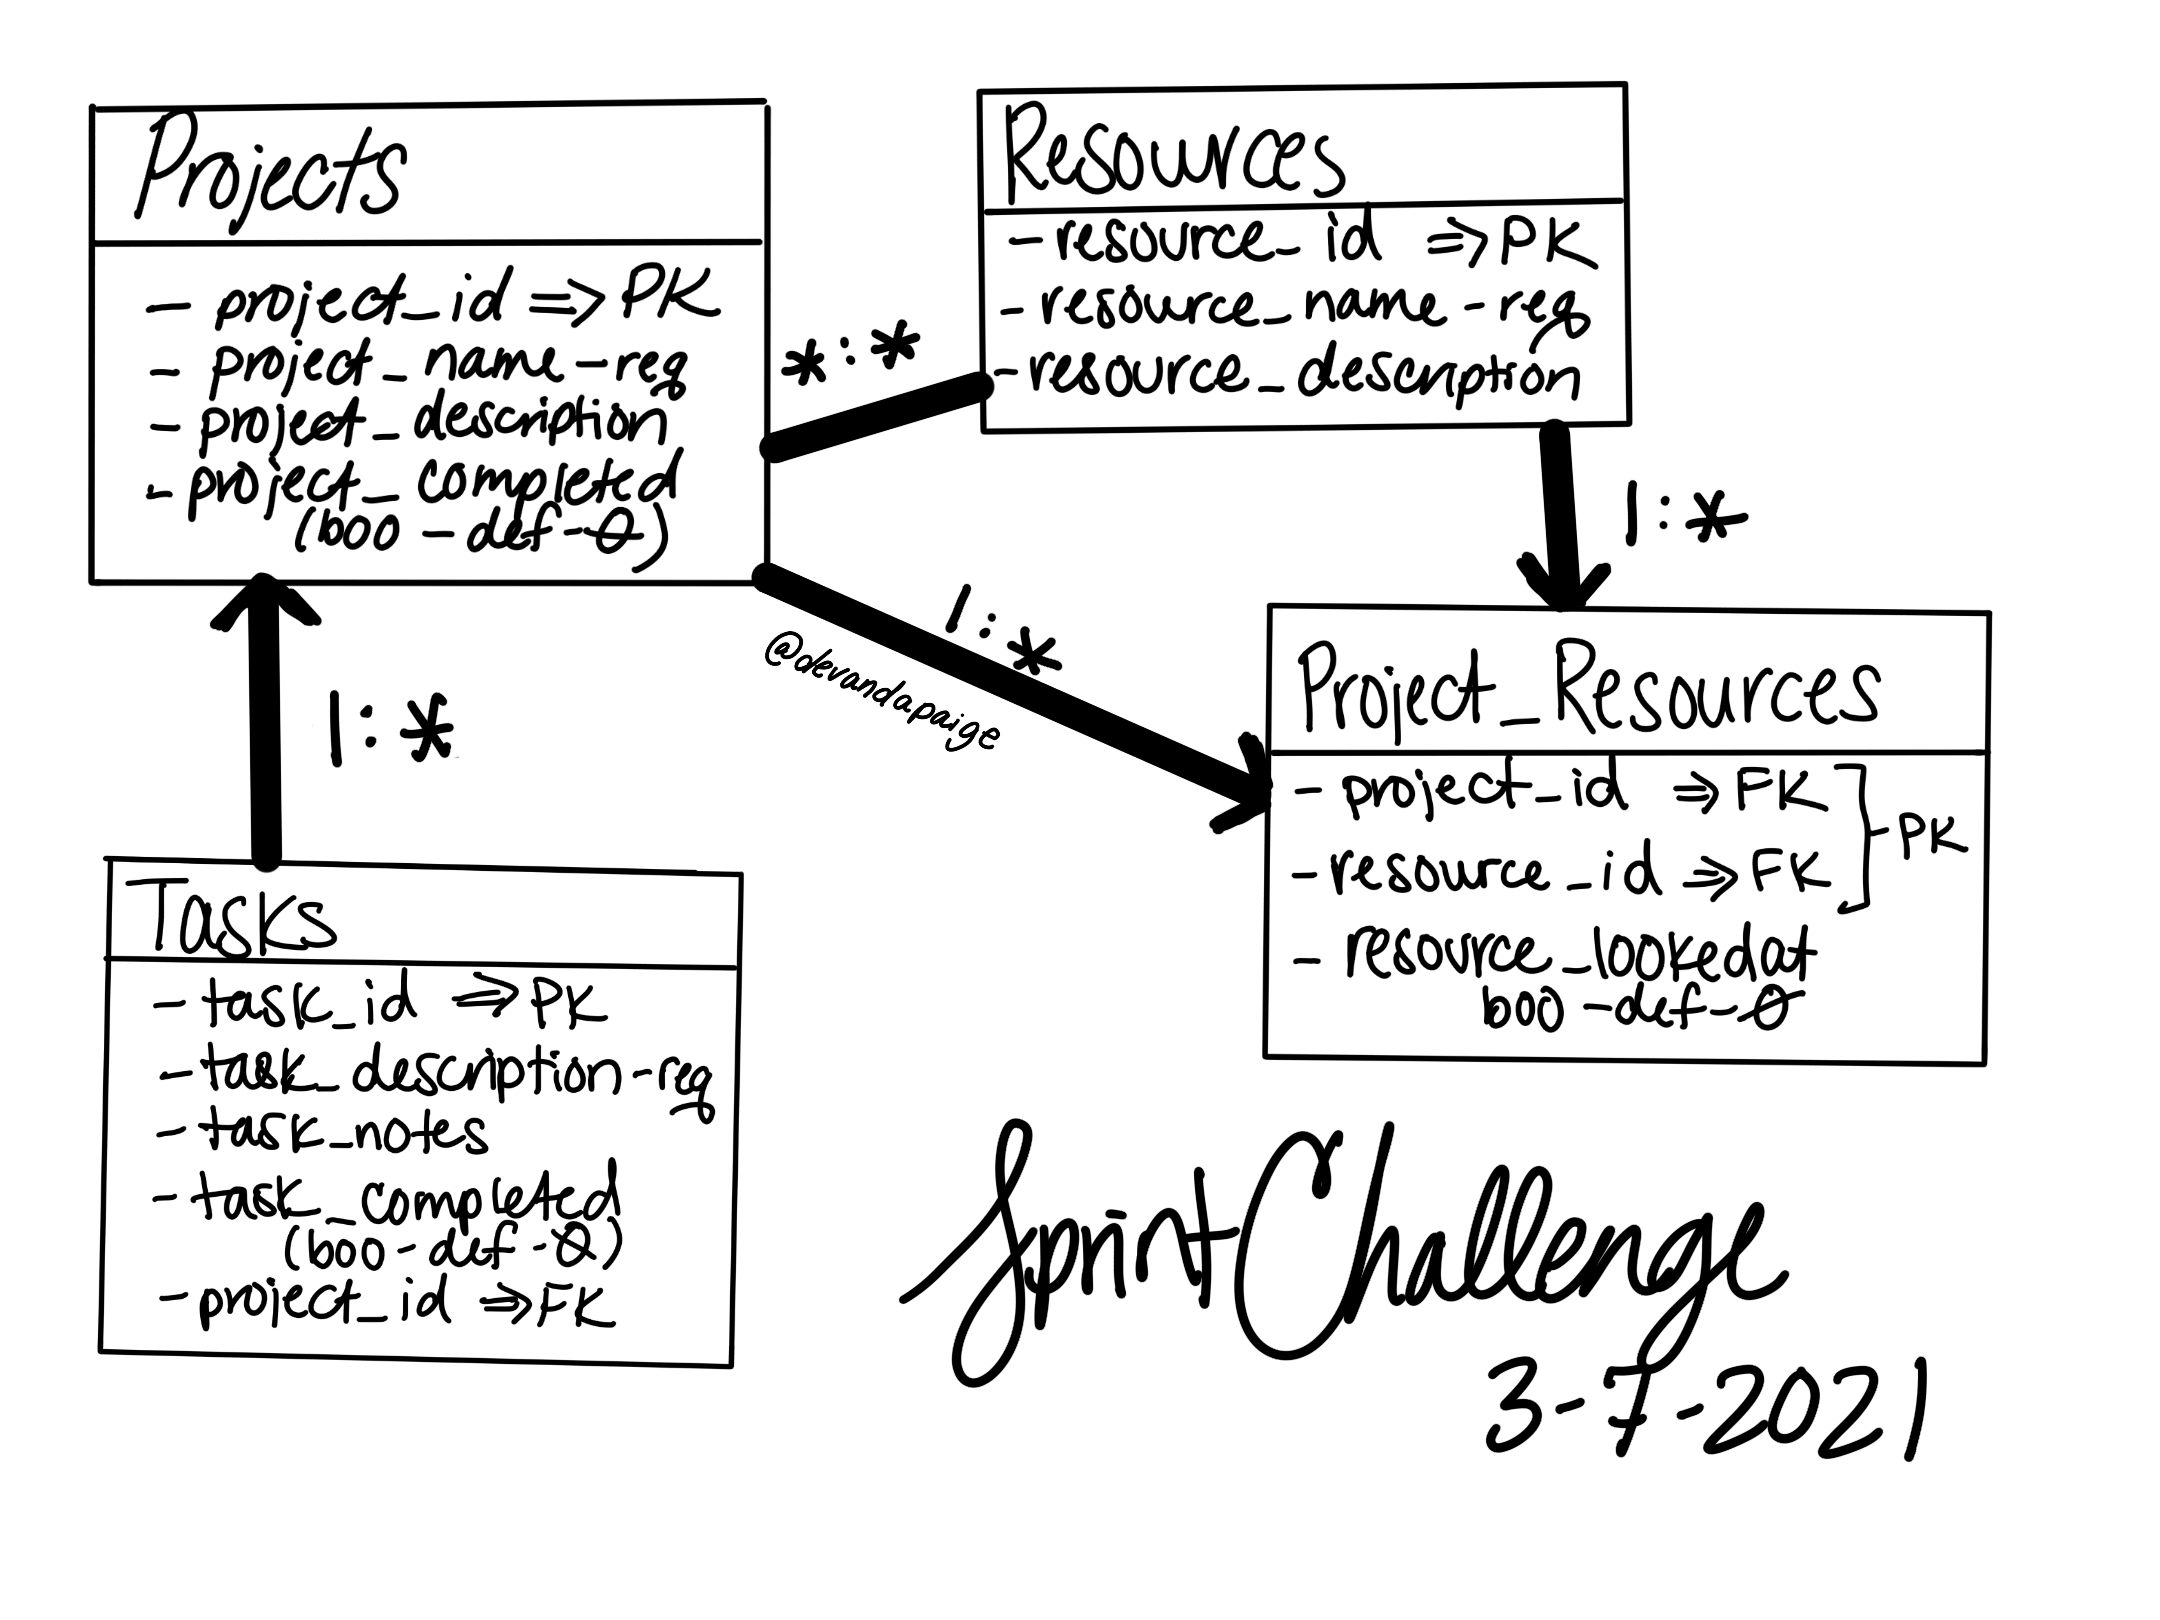 Projects
- project_id => PK
- project_name - req
- project_description
- project_completed
(boo - def - 0)
*:*
Resources
- resource_id => PK
- resource_name - req
- resource_description
1:*
1:*
@devandapaige
1:*
Project_Resources
- project_id => FK
- resource_id => FK
PK
- resource_lookedat
boo - def - 0
Tasks
- task_id => PK
- task_description - req
- task_notes
- task_completed
(boo - def - 0)
- project_id => FK
Sprint Challenge
3-7-2021